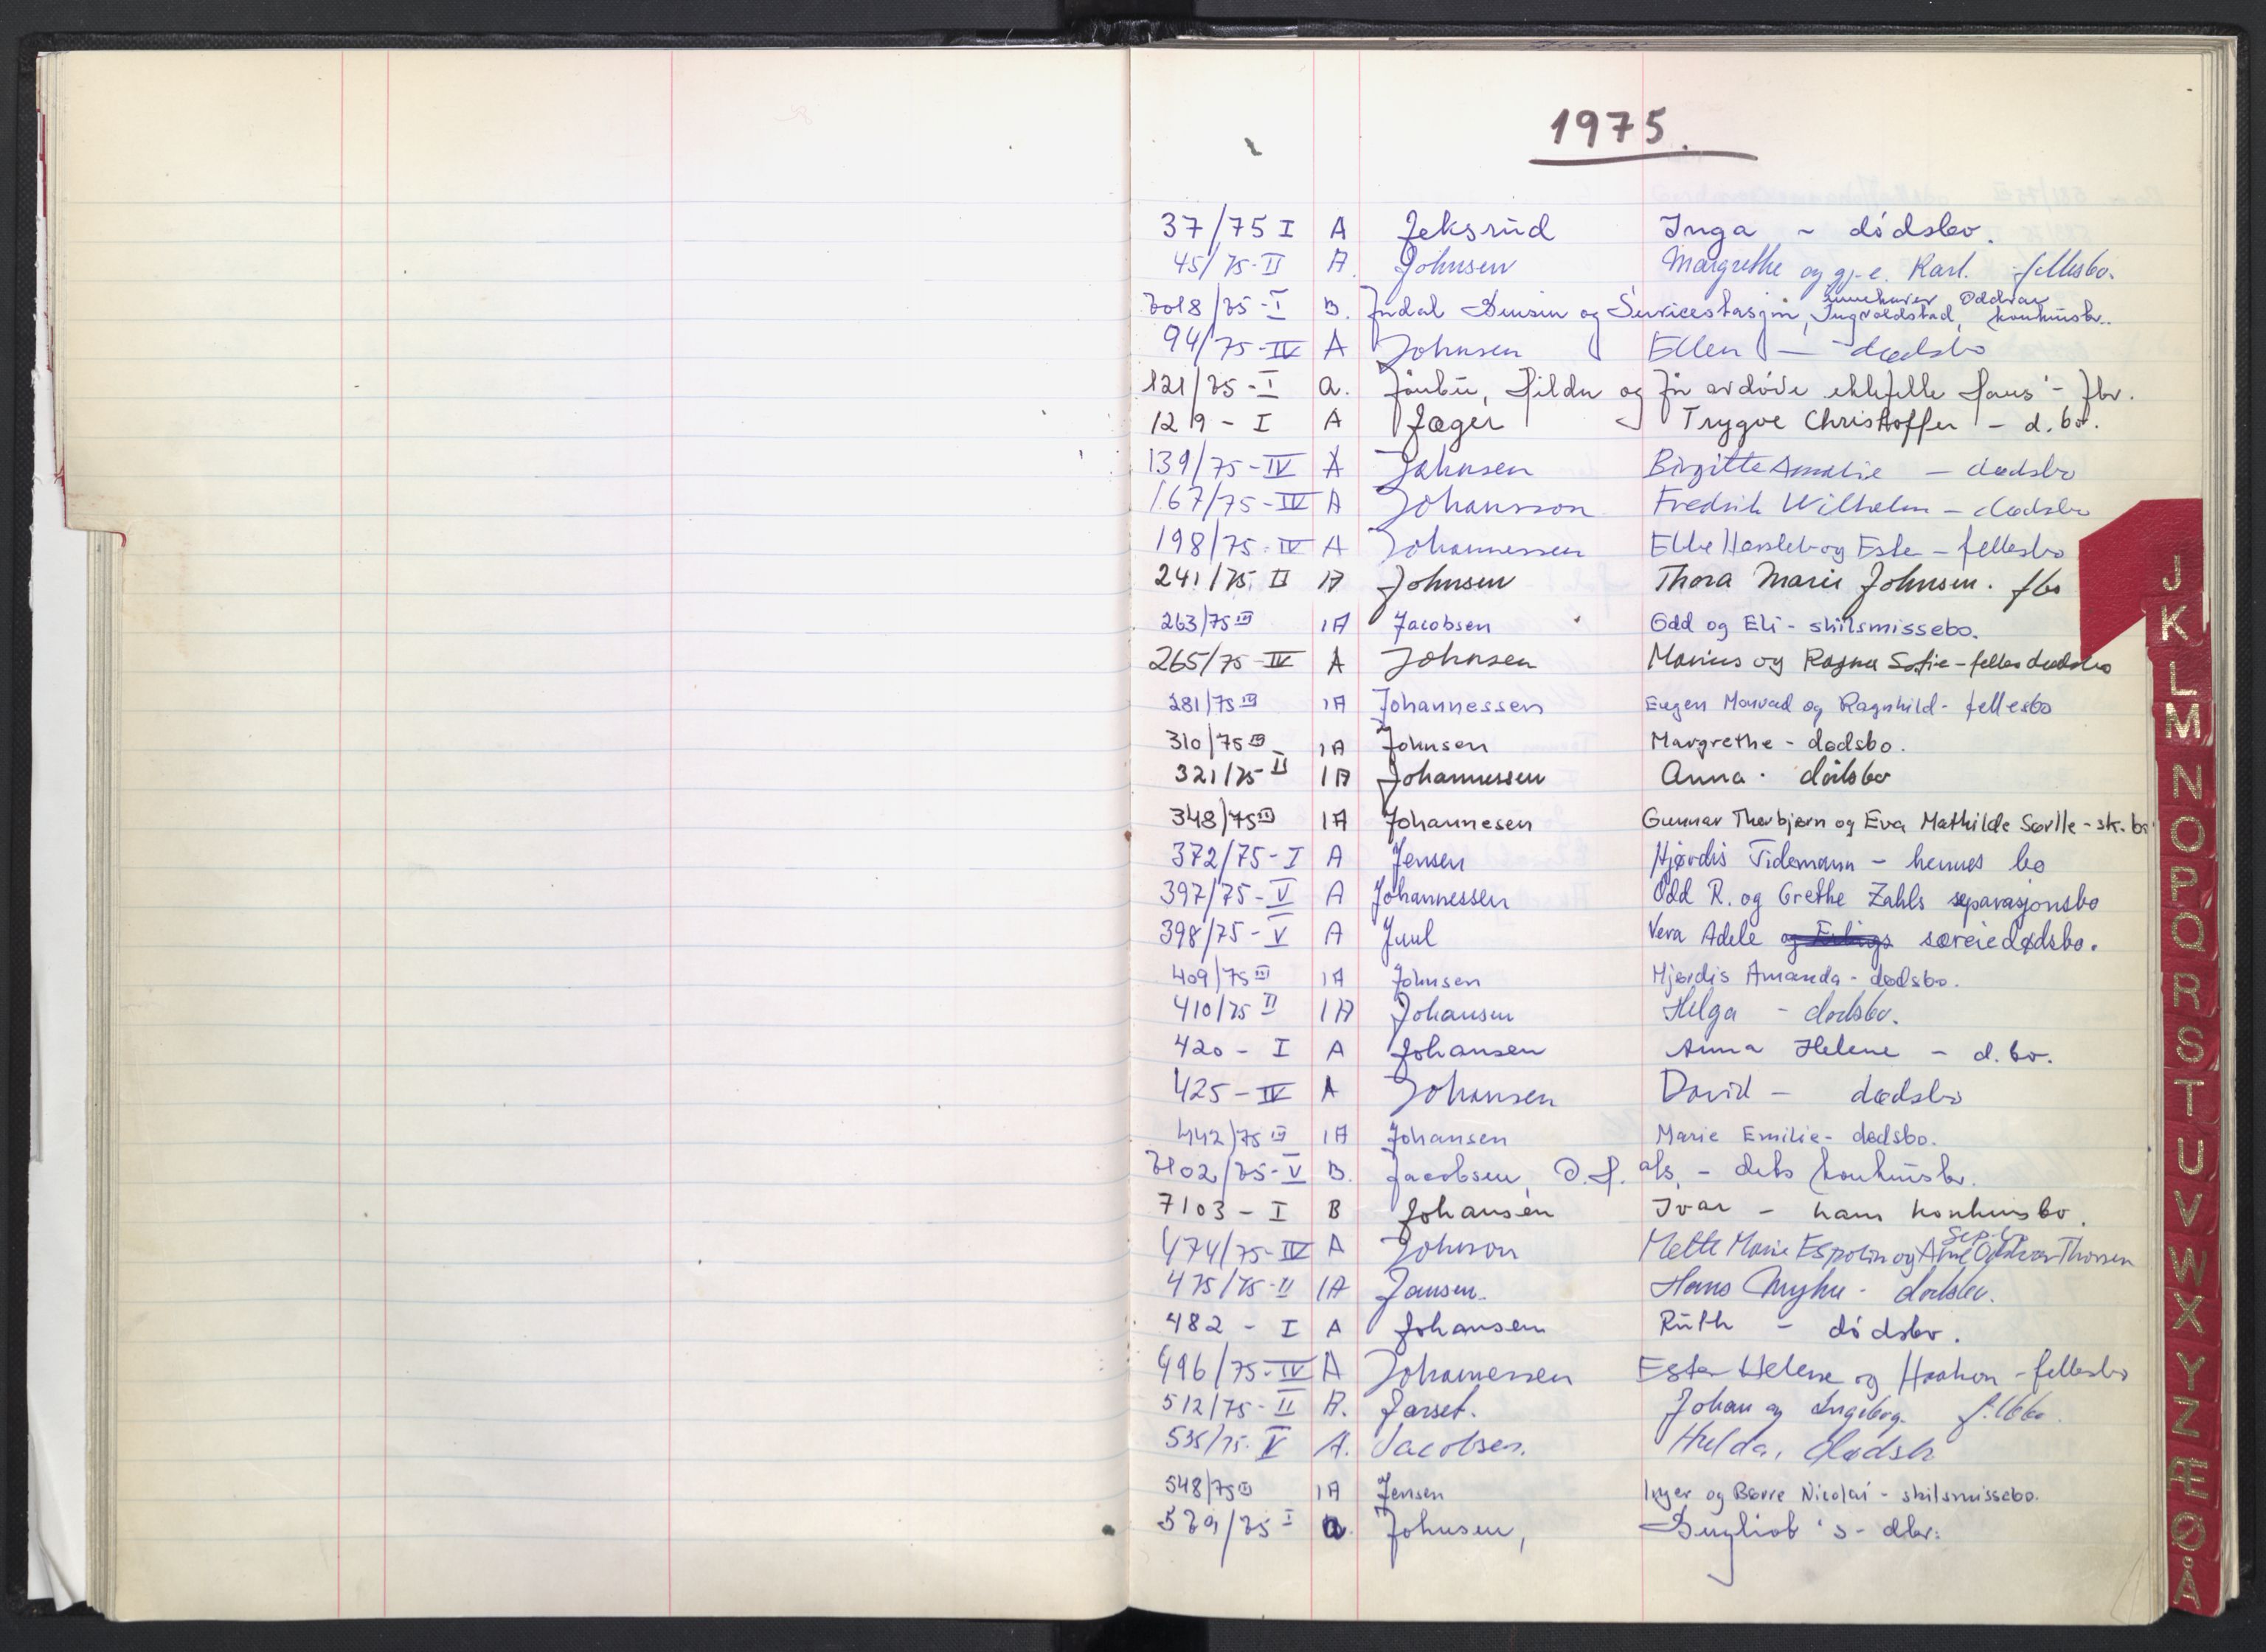 1975.
37/75 I A Jeksrud Inga - dødsbo.
45/75-II A. Johnsen Margrethe og gj.e. Karl. fellesbo.
7018/75-I B. Jndal Bensin og Servicestasjon, innehaver Oddvar Ingvoldstad, konkursbo.
94/75-IV A Johnsen Ellen - dødsbo
121/75-I a. og før avdøde ektefelle Hans' - fbo.
129 - I A Jæger Trygve Christoffer - d.bo.
139/75-IV A Johnsen Birgitte Amalie - dødsbo
167/75-IV A Johansson Fredrik Wilhelm - dødsbo
198/75-IV A Johannessen Ebbe og Ester - fellesbo
241/75 II A Johnsen Thora Marie Johnsen. fbo
263/75 III 1A Jacobsen Odd og Eli - skilsmissebo.
265/75-IV A Johnsen Marius og Ragna Sofie - felles dødsbo
281/75 III 1A Johannessen Eugen Monrad og Ragnhild - fellesbo
310/75 III 1A Johnsen Margrethe - dødsbo.
321/75-II 1A Johannessen Anna. dødsbo
348/75 III 1A Johannesen Gunnar Thorbjørn og Eva Mathilde Sørlle - sk.bo
372/75-I A Jensen Hjørdis Tidemann - hennes bo
397/75-V A Johannessen Odd R. og Grethe Zahls separasjonsbo
398/75-V A Juul Vera Adele særeiedødsbo.
409/75 III 1A Johnsen Hjørdis Amanda - dødsbo.
410/75 II 1A Johansen Helga - dødsbo.
420 - I A Johansen Anna Helene - d.bo.
425 - IV A Johansen David - dødsbo
442/75 III 1A Johansen Marie Emilie - dødsbo.
7102/75-V B. Jacobsen, O.H. a/s, - dets konkursbo.
7103 - I B Johansen Ivar - hans konkursbo.
474/75-IV A Johnson Mette Marie Espolin og Arne Oddvar Thorsen Sep.bo
475/75-II 1A Jansen. Hans Myhre - dødsbo.
482 - I A Johansen Ruth - dødsbo.
496/75-IV A Johannessen Ester Helene og Haakon - fellesbo
512/75-II A. Jarset. Johan og Ingeborg. f.bo.
535/75-V A. Jacobsen. Hulda, dødsbo
548/75 III 1A Jensen Inger og Børre Nicolai - skilsmissebo.
579/75 I a. Johnsen, 's - dbo.
J
K
L
M
N
O
P
Q
R
S
T
U
V
W
X
Y
Z
Æ
Ø
Å